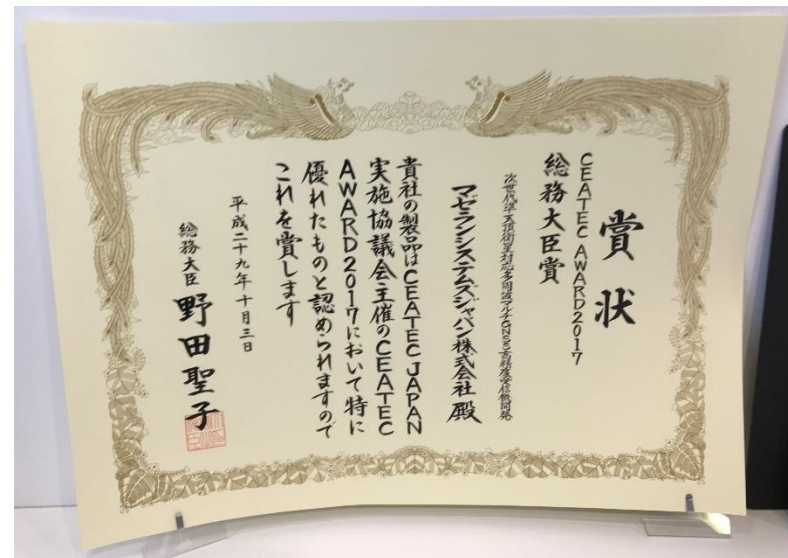 賞状
CEATEC AWARD2017
総務大臣賞
次世代準天頂衛星対応多周波マルチGNSS高精度受信機開発
マゼランシステムズジャパン株式会社 殿
貴社の製品はCEATEC JAPAN
実施協議会主催のCEATEC
AWARD2017において特に
優れたものと認められますので
これを賞します
平成二十九年十月三日
総務大臣 野田聖子